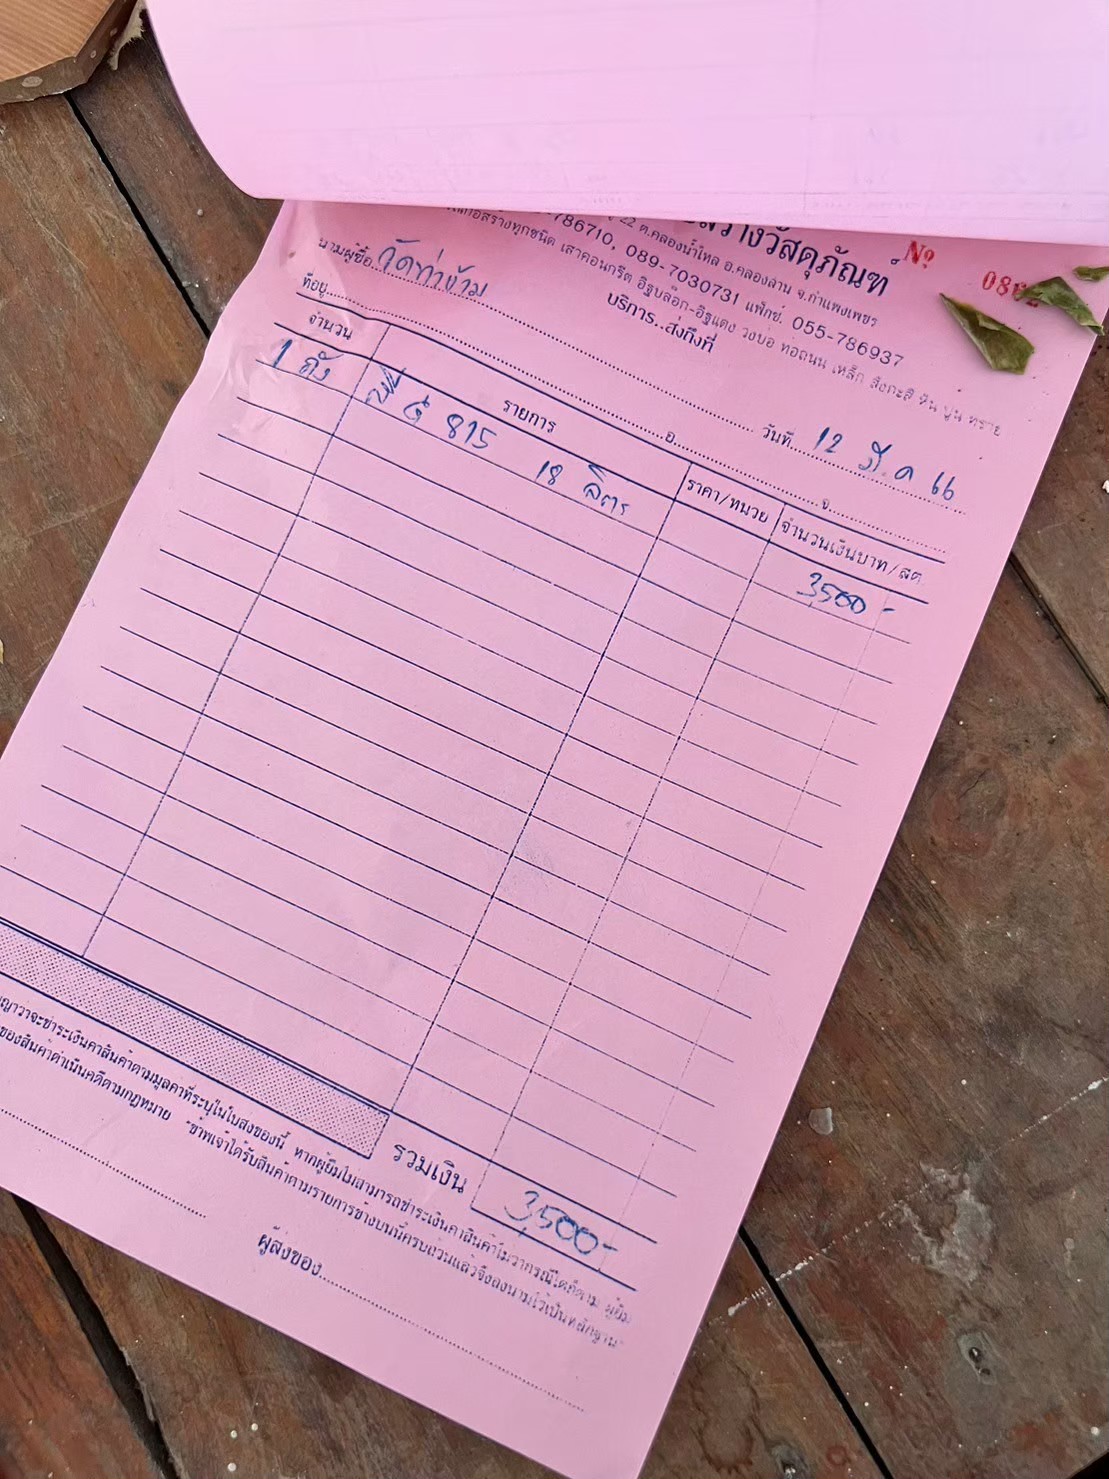 สว่างวัสดุภัณฑ์
Nº
ต.คลองน้ำไหล อ.คลองลาน จ.กำแพงเพชร
786710, 089-7030731 แฟ็กซ์. 055-786937
ก่อสร้างทุกชนิด เสาคอนกรีต อิฐบล๊อก-อิฐแดง วงบ่อ ท่อถนน เหล็ก สังกะสี หิน ปูน ทราย
บริการ..ส่งถึงที่
นามผู้ซื้อ วัดท่าข้าม วันที่ 12 มี.ค 66
ที่อยู่ อ. จ.
จำนวน รายการ ราคา/หน่วย จำนวนเงินบาท/สต.
1 ถัง สี 815 18 ลิตร 3,500 -
รวมเงิน 3,500 -
ญาว่าจะชำระเงินค่าสินค้าตามมูลค่าที่ระบุในใบส่งของนี้ หากผู้ยืมไม่สามารถชำระเงินค่าสินค้าไม่ว่ากรณีใดก็ตาม ผู้ยืม
ของสินค้าดำเนินคดีตามกฎหมาย "ข้าพเจ้าได้รับสินค้าตามรายการข้างบนนี้ครบถ้วนแล้วจึงลงนามไว้เป็นหลักฐาน"
ผู้ส่งของ